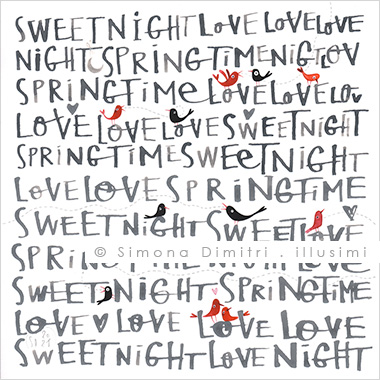 SWEETNIGHT LOVE LOVE LOVE
NIGHT SPRINGTIME NIG LOV
SPRINGTIME LOVE LOVE LOV
LOVE LOVE LOVE SWEETNIGHT
SPRINGTIME SWEETNIGHT
LOVE LOVE SPRINGTIME
SWEETNIGHT SWEETLOVE
© Simona Dimitri . illusimi
SWEETNIGHT SPRINGTIME
LOVE LOVE LOVE LOVE
SWEETNIGHT LOVE NIGHT